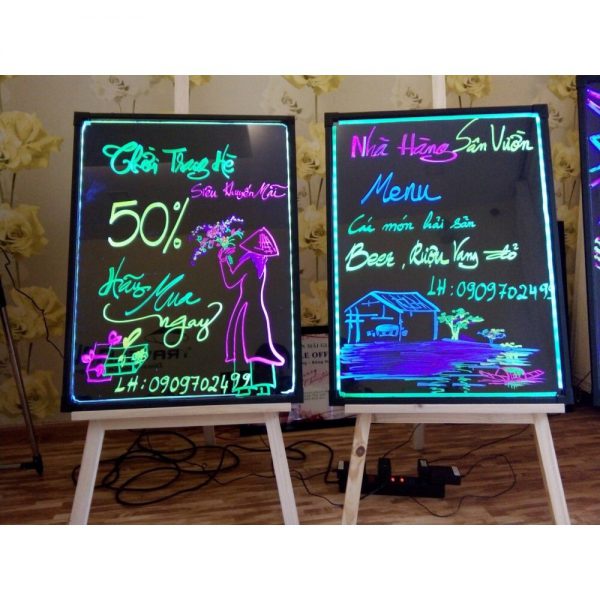 Thời Trang Hè
Siêu Khuyến Mãi
50%
Hãy Mua
ngay
LH: 0909702499
Nhà Hàng Sân Vườn
Menu
Các món hải sản
Beer, Rượu Vang đỏ
LH: 0909702499